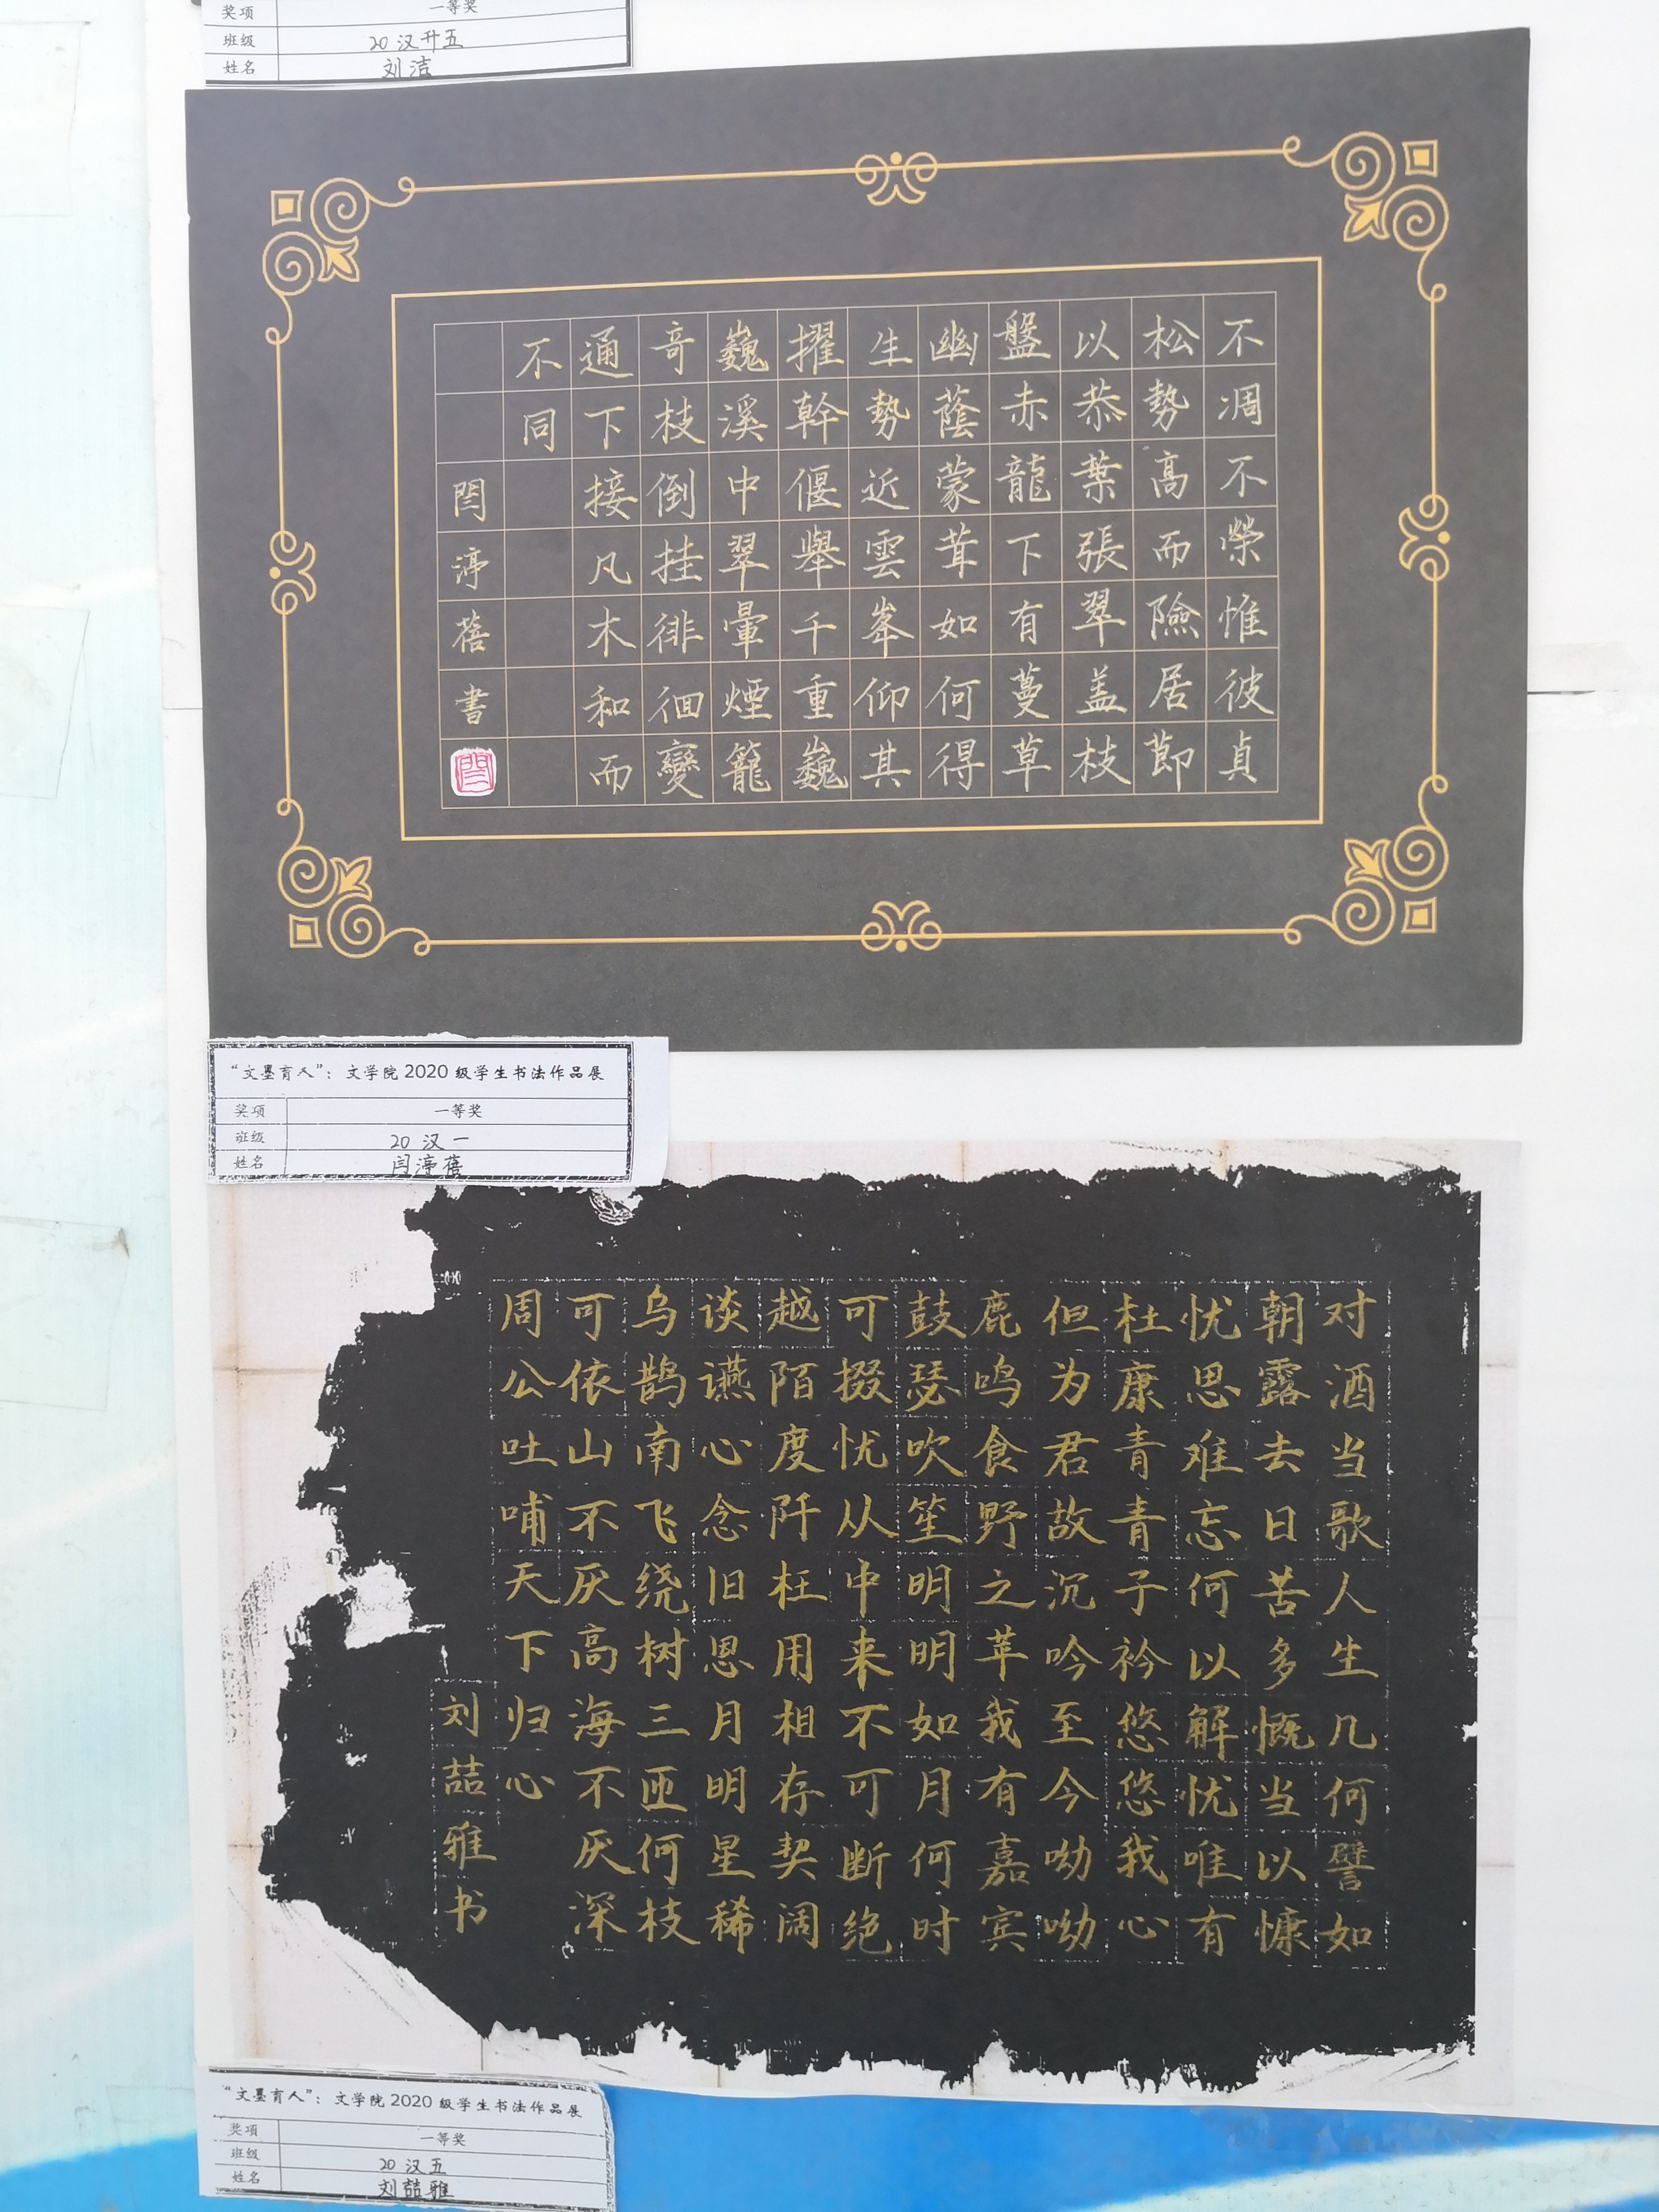 奖项 一等奖
班级 20 汉升五
姓名 刘洁
不凋不榮惟彼貞
松勢高而險居節
以恭葉張翠盖枝
盤赤龍下有蔓草
幽蔭蒙茸如何得
生勢近雲峯仰其
擢幹偃舉千重巍
巍溪中翠暈煙籠
奇枝倒挂徘徊變
通下接凡木和而
不同
閆渟蓓書
閆
“文墨育人”：文学院 2020 级学生书法作品展
奖项 一等奖
班级 20 汉一
姓名 闫渟蓓
对酒当歌人生几何譬如
朝露去日苦多慨当以慷
忧思难忘何以解忧唯有
杜康青青子衿悠悠我心
但为君故沉吟至今呦呦
鹿鸣食野之苹我有嘉宾
鼓瑟吹笙明明如月何时
可掇忧从中来不可断绝
越陌度阡枉用相存契阔
谈讌心念旧恩月明星稀
乌鹊南飞绕树三匝何枝
可依山不厌高海不厌深
周公吐哺天下归心
刘喆雅书
“文墨育人”：文学院 2020 级学生书法作品展
奖项 一等奖
班级 20 汉五
姓名 刘喆雅